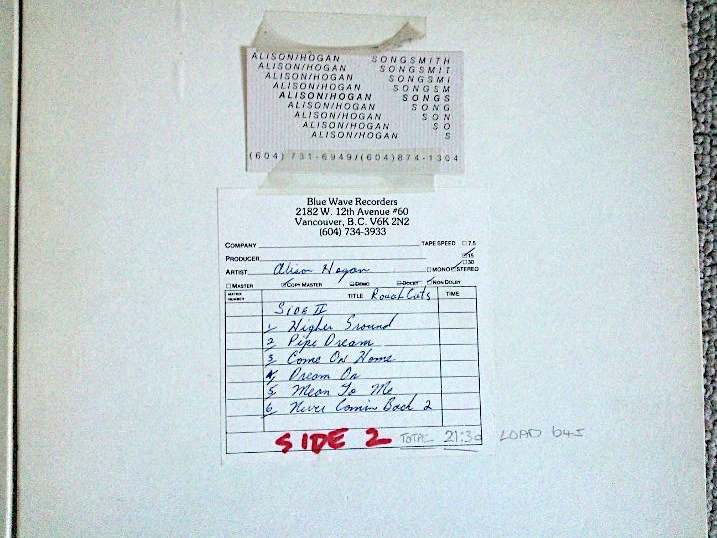 ALISON/HOGAN SONGSMITH
ALISON/HOGAN SONGSMIT
ALISON/HOGAN SONGSMI
ALISON/HOGAN SONGSM
ALISON/HOGAN SONGS
ALISON/HOGAN SONG
ALISON/HOGAN SON
ALISON/HOGAN SO
ALISON/HOGAN S
(604) 731-6949/(604)874-1304
Blue Wave Recorders
2182 W. 12th Avenue #60
Vancouver, B.C. V6K 2N2
(604) 734-3933
COMPANY TAPE SPEED 7.5
PRODUCER 15
30
ARTIST Alison Hogan MONO STEREO
MASTER COPY MASTER DEMO DOLBY NON DOLBY
MATRIX NUMBER TITLE Rough Cuts TIME
SIDE II
1 Higher Ground
2 Pipe Dream
3 Come On Home
4 Dream On
5 Mean To Me
6 Never Comin Back 2
SIDE 2 TOTAL 21:30 LOAD